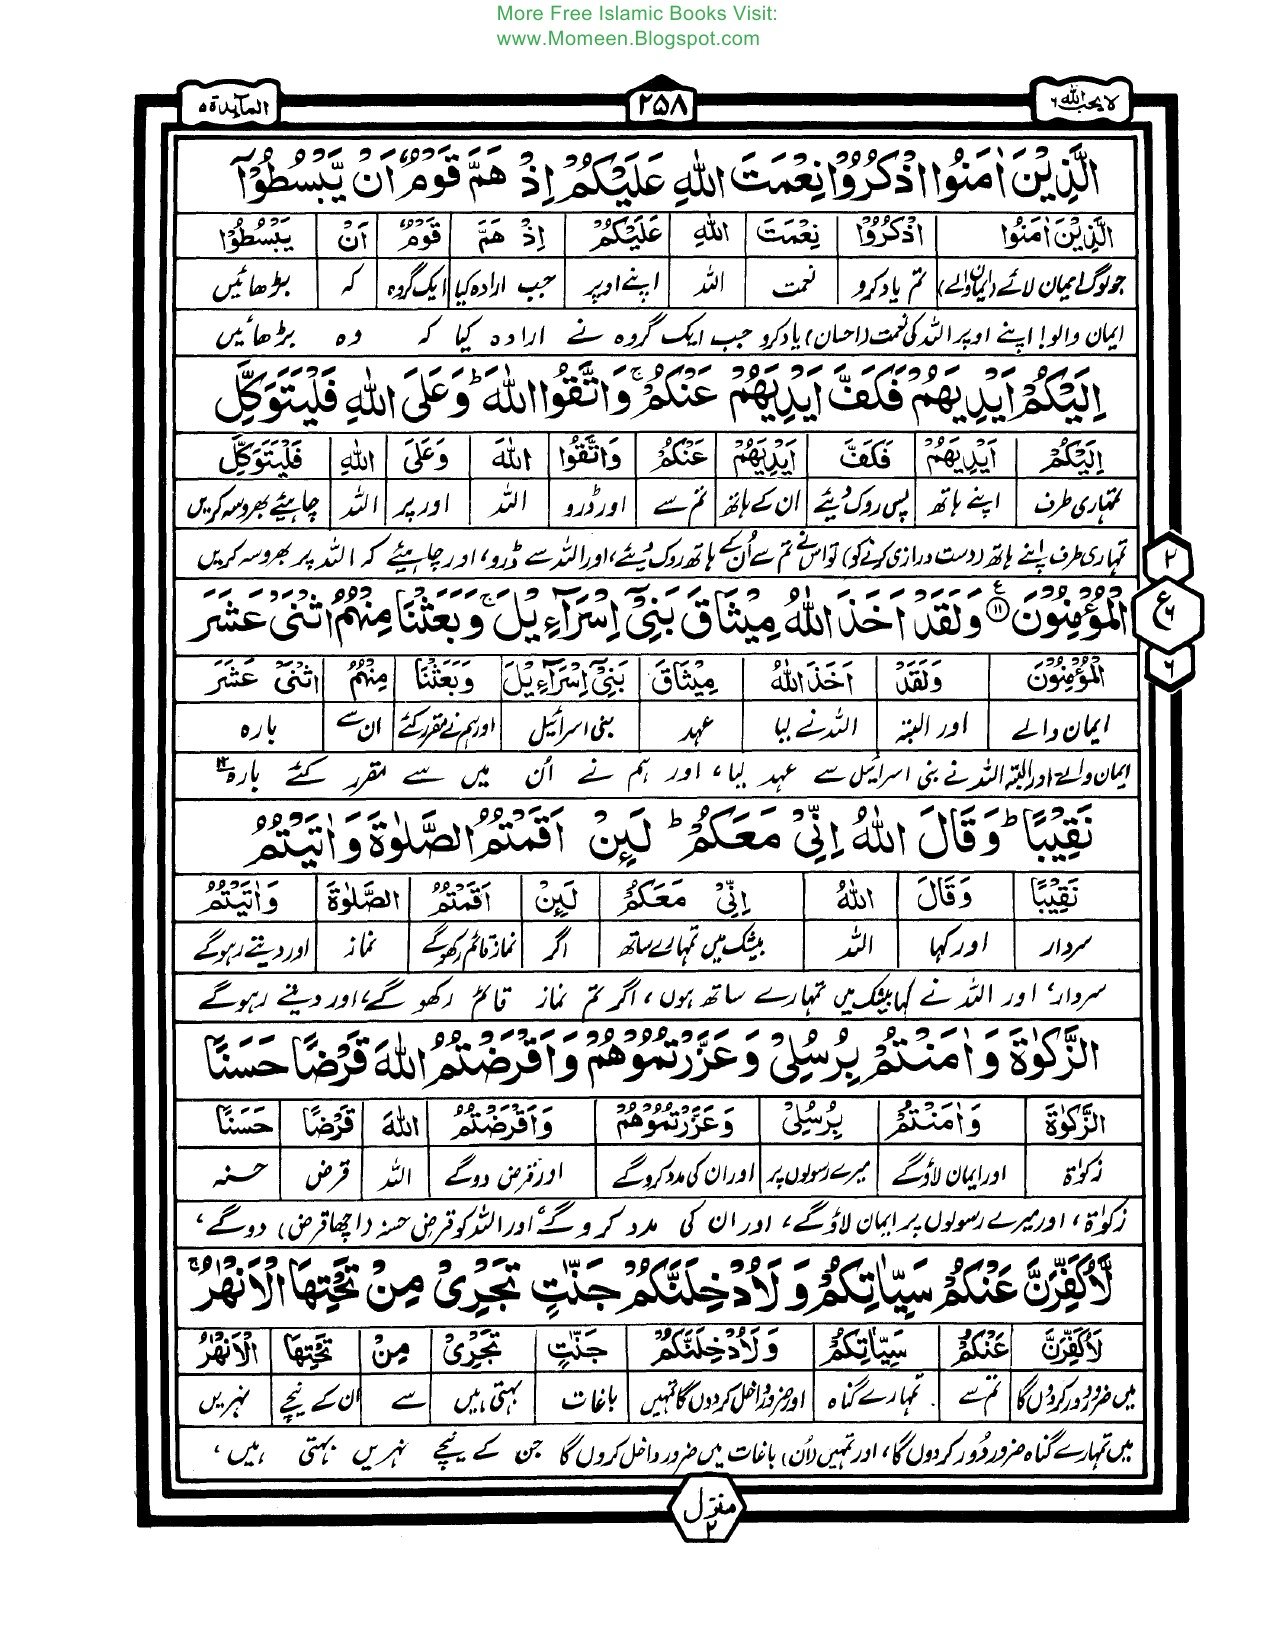 More Free Islamic Books Visit:
www.Momeen.Blogspot.com
لا یحب اللہ ۶
۲۵۸
المآىِٕدة ۵
الَّذِیْنَ اٰمَنُوا اذْكُرُوْا نِعْمَتَ اللّٰهِ عَلَیْكُمْ اِذْ هَمَّ قَوْمٌ اَنْ یَّبْسُطُوْۤا
الَّذِیْنَ اٰمَنُوا اذْكُرُوْا نِعْمَتَ اللّٰهِ عَلَیْكُمْ اِذْ هَمَّ قَوْمٌ اَنْ یَّبْسُطُوْۤا
جو لوگ ایمان لائے (ایمان والے) تم یاد کرو نعمت اللہ اپنے اوپر جب ارادہ کیا ایک گروہ کہ بڑھائیں
ایمان والو! اپنے اوپر اللہ کی نعمت (احسان) یاد کرو جب ایک گروہ نے ارادہ کیا کہ وہ بڑھائیں
اِلَیْكُمْ اَیْدِیَهُمْ فَكَفَّ اَیْدِیَهُمْ عَنْكُمْ ۚ وَاتَّقُوا اللّٰهَ ؕ وَعَلَى اللّٰهِ فَلْیَتَوَكَّلِ
اِلَیْكُمْ اَیْدِیَهُمْ فَكَفَّ اَیْدِیَهُمْ عَنْكُمْ وَاتَّقُوا اللّٰهَ وَعَلَى اللّٰهِ فَلْیَتَوَكَّلِ
تمہاری طرف اپنے ہاتھ پس روک دیئے ان کے ہاتھ تم سے اور ڈرو اللہ اور پر اللہ چاہیئے بھروسہ کریں
تمہاری طرف اپنے ہاتھ (دست درازی کرنے کو) تو اس نے تم سے اُن کے ہاتھ روک دیئے، اور اللہ سے ڈرو، اور چاہیئے کہ اللہ پر بھروسہ کریں
۲
الْمُؤْمِنُوْنَ ۝۱۱ وَلَقَدْ اَخَذَ اللّٰهُ مِیْثَاقَ بَنِیْۤ اِسْرَآءِیْلَ ۚ وَبَعَثْنَا مِنْهُمُ اثْنَیْ عَشَرَ
ع ۶
۶
الْمُؤْمِنُوْنَ وَلَقَدْ اَخَذَ اللّٰهُ مِیْثَاقَ بَنِیْۤ اِسْرَآءِیْلَ وَبَعَثْنَا مِنْهُمُ اثْنَیْ عَشَرَ
ایمان والے اور البتہ اللہ نے لیا عہد بنی اسرائیل اور ہم نے مقرر کئے ان سے بارہ
ایمان والے اور البتہ اللہ نے بنی اسرائیل سے عہد لیا، اور ہم نے اُن میں سے مقرر کئے بارہ ۱۲
نَقِیْبًا ؕ وَقَالَ اللّٰهُ اِنِّیْ مَعَكُمْ ؕ لَىِٕنْ اَقَمْتُمُ الصَّلٰوةَ وَاٰتَیْتُمُ
نَقِیْبًا وَقَالَ اللّٰهُ اِنِّیْ مَعَكُمْ لَىِٕنْ اَقَمْتُمُ الصَّلٰوةَ وَاٰتَیْتُمُ
سردار اور کہا اللہ بیشک میں تمہارے ساتھ اگر نماز قائم رکھو گے نماز اور دیتے رہو گے
سردار، اور اللہ نے کہا بیشک میں تمہارے ساتھ ہوں، اگر تم نماز قائم رکھو گے، اور دیتے رہو گے
الزَّكٰوةَ وَاٰمَنْتُمْ بِرُسُلِیْ وَعَزَّرْتُمُوْهُمْ وَاَقْرَضْتُمُ اللّٰهَ قَرْضًا حَسَنًا
الزَّكٰوةَ وَاٰمَنْتُمْ بِرُسُلِیْ وَعَزَّرْتُمُوْهُمْ وَاَقْرَضْتُمُ اللّٰهَ قَرْضًا حَسَنًا
زکوٰۃ اور ایمان لاؤ گے میرے رسولوں پر اور ان کی مدد کرو گے اور قرض دو گے اللہ قرض حسنہ
زکوٰۃ، اور میرے رسولوں پر ایمان لاؤ گے، اور ان کی مدد کرو گے، اور اللہ کو قرضِ حسنہ (اچھا قرض) دو گے،
لَّاُكَفِّرَنَّ عَنْكُمْ سَیِّاٰتِكُمْ وَلَاُدْخِلَنَّكُمْ جَنّٰتٍ تَجْرِیْ مِنْ تَحْتِهَا الْاَنْهٰرُ ۚ
لَاُكَفِّرَنَّ عَنْكُمْ سَیِّاٰتِكُمْ وَلَاُدْخِلَنَّكُمْ جَنّٰتٍ تَجْرِیْ مِنْ تَحْتِهَا الْاَنْهٰرُ
میں ضرور دور کروں گا تم سے تمہارے گناہ اور ضرور داخل کر دوں گا تمہیں باغات بہتی ہیں سے ان کے نیچے نہریں
میں تمہارے گناہ ضرور دُور کر دوں گا، اور تمہیں (اُن) باغات میں ضرور داخل کروں گا جن کے نیچے نہریں بہتی ہیں،
منزل ۲